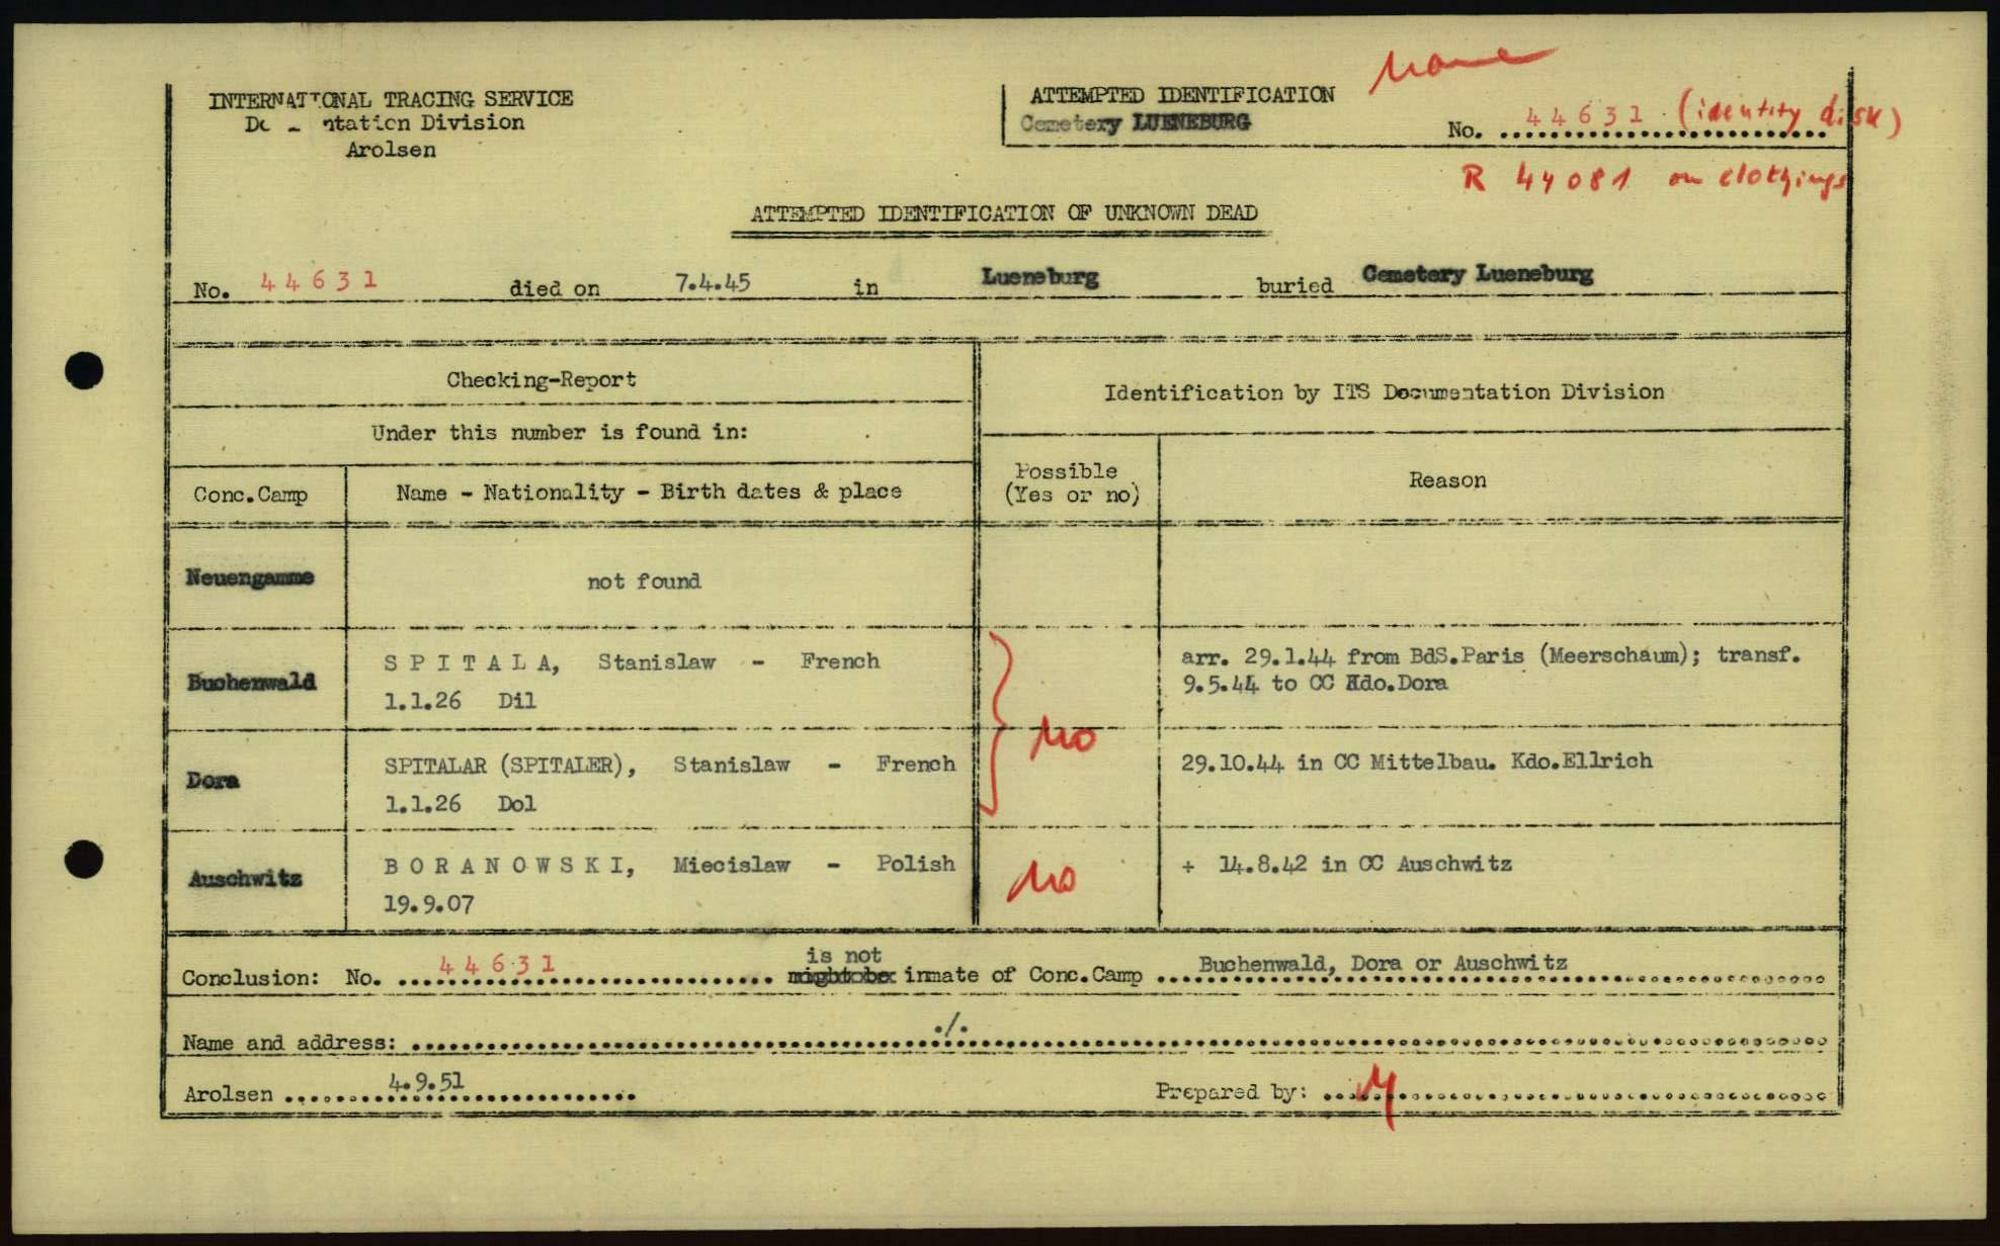 None
INTERNATIONAL TRACING SERVICE
ntation Division
Arolsen
ATTEMPTED IDENTIFICATION
Cemetery LUENEBURG
No. 44631 (identity disk)
R 44081 on clothings
ATTEMPTED IDENTIFICATION OF UNKNOWN DEAD
No. 44631 died on 7.4.45 in Lueneburg buried Cemetery Lueneburg
Checking-Report
Identification by ITS Documentation Division
Under this number is found in:
Conc.Camp
Name - Nationality - Birth dates & place
Possible
(Yes or no)
Reason
Neuengamme
not found
Buchenwald
S P I T A L A, Stanislaw - French
1.1.26 Dil
arr. 29.1.44 from BdS.Paris (Meerschaum); transf.
9.5.44 to CC Kdo.Dora
no
Dora
SPITALAR (SPITALER), Stanislaw - French
1.1.26 Dol
29.10.44 in CC Mittelbau. Kdo.Ellrich
Auschwitz
B O R A N O W S K I, Miecislaw - Polish
19.9.07
no
+ 14.8.42 in CC Auschwitz
is not
Conclusion: No. 44631 inmate of Conc.Camp Buchenwald, Dora or Auschwitz
Name and address: ./.
Arolsen 4.9.51
Prepared by: